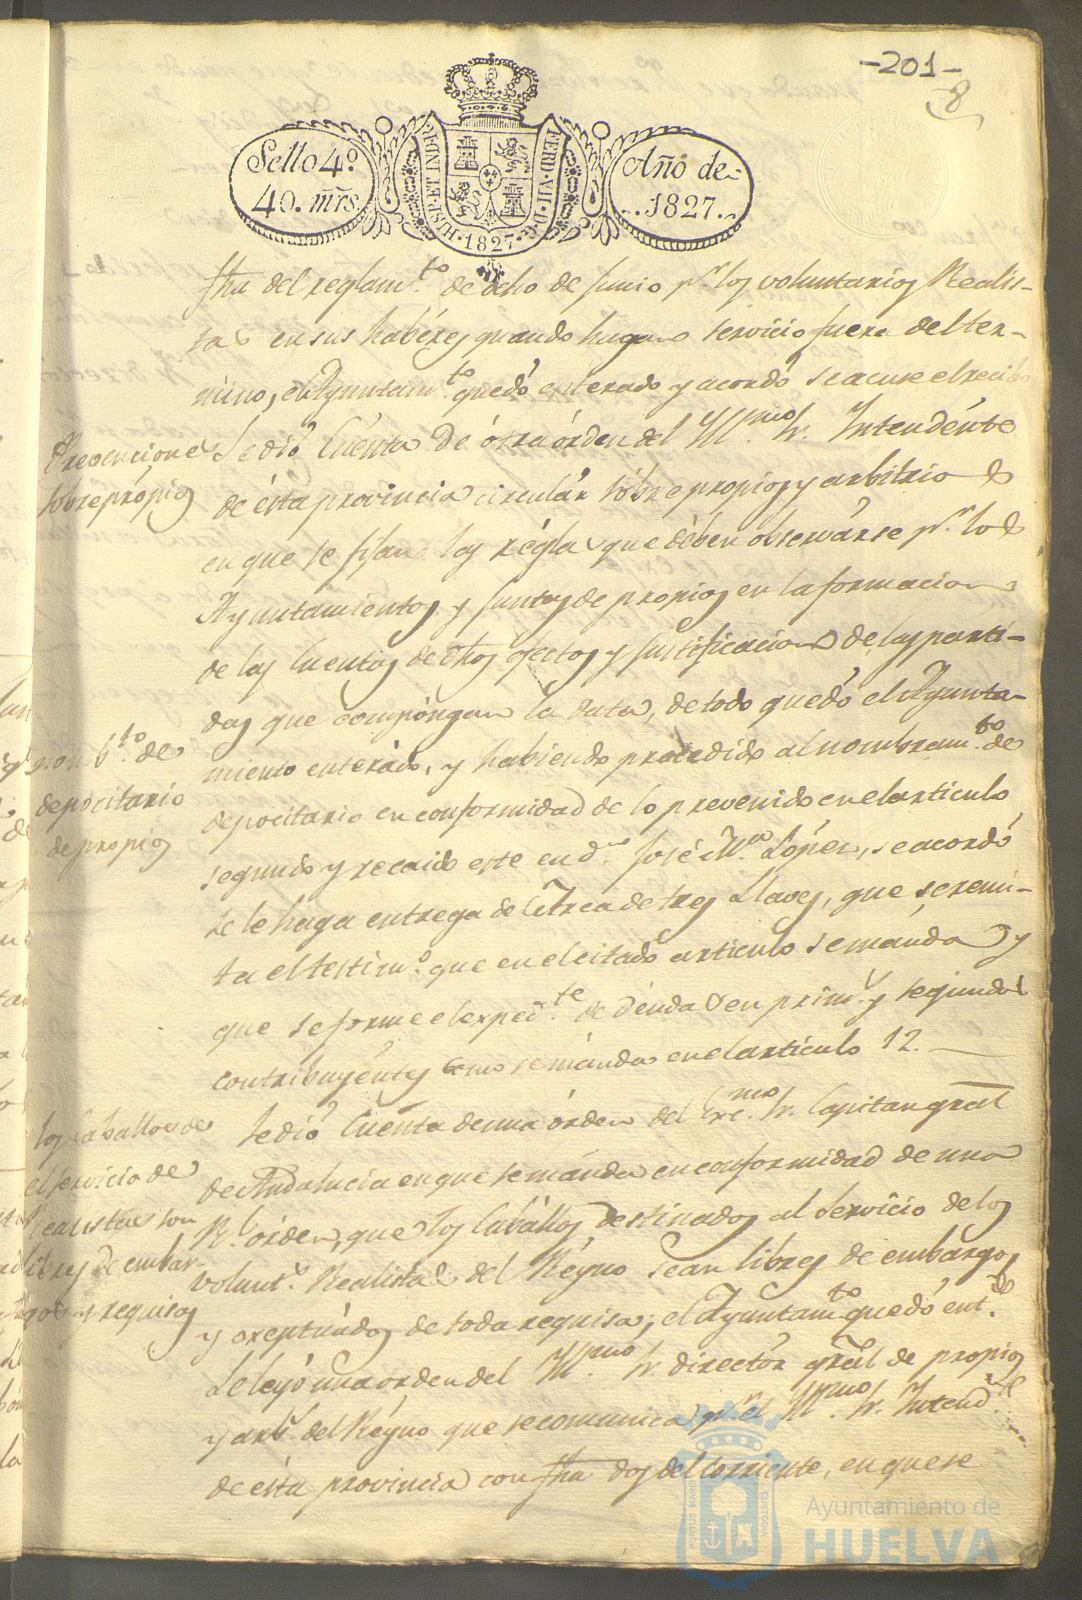 -201-
8
Sello 4º
40. mrs.
HISP. ET IND. R.
FERD. VII. D. G.
·1827·
Año de
1827.
fha del reglamto. de ocho de Junio pr. los voluntarios Realis-
tas en sus habéres quando hagan servicio fuera del ter-
mino, el Ayuntamto. quedó enterado y acordó se acuse el recibo
Prevenciones
sobre própios
Se dió Cuenta de ótra órden del Yllmo. Sr. Intendénte
de ésta provincia circulár sóbre propios y arbitrios
en que se fijan las réglas que dében observárse pr. los
Ayuntamientos y Juntas de propios en la formacion
de las Cuentas de dhos efectos y justificacion de las parti-
das que compóngan la data, de todo quedó el Ayunta-
nombto. de
depocitario
de propios
miento enterádo, y habiendo procedido al nombramto. de
depocitario en conformidad de lo prevenido en el articulo
segundo y recaido este en dn. José Ma. López, se acordó
se le haga entrega de la Arca de tres Llaves, que se remi-
ta el testimo. que en el citado articulo se mánda y
que se forme el expedte. de deudas en prims. y segundos
contribuyéntes como se mánda en el artículo 12.
los Caballos de
el servicio de
Realistas son
libres de embar-
gos y requisas
Se dió Cuénta de una órden del Exmo. Sr. Capitan gral
de Andalucía en que se mánda en conformidad de una
Rl. órden, que los Cabállos destinados al Servicio de los
volunts. Realistas del Réyno sean libres de embárgos
y exeptúados de toda requisa; el Ayuntamto. quedó entdo.
Se leyó una orden del Yllmo. Sr. diréctor grál de propios
y arbs. del Réyno que se comunica pr. el Yllmo. Sr. Intendte.
de ésta provincia con fha dos del corriente, en que se
PORTUS MARIS
CUSTODIA
Ayuntamiento de
HUELVA